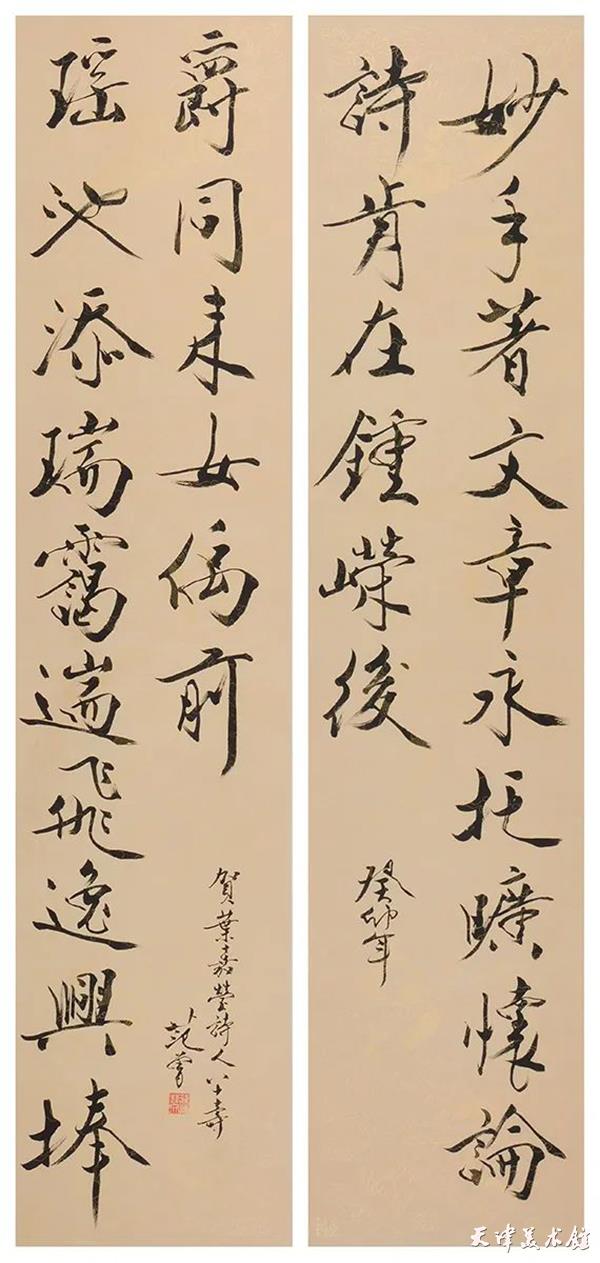 妙手著文章永托曠懷論
詩肯在鍾嶸後
癸卯年
瑶池添瑞靄遄飛逸興捧
爵同来女偊前
賀葉嘉瑩詩人八十壽
范曾
天津美术馆